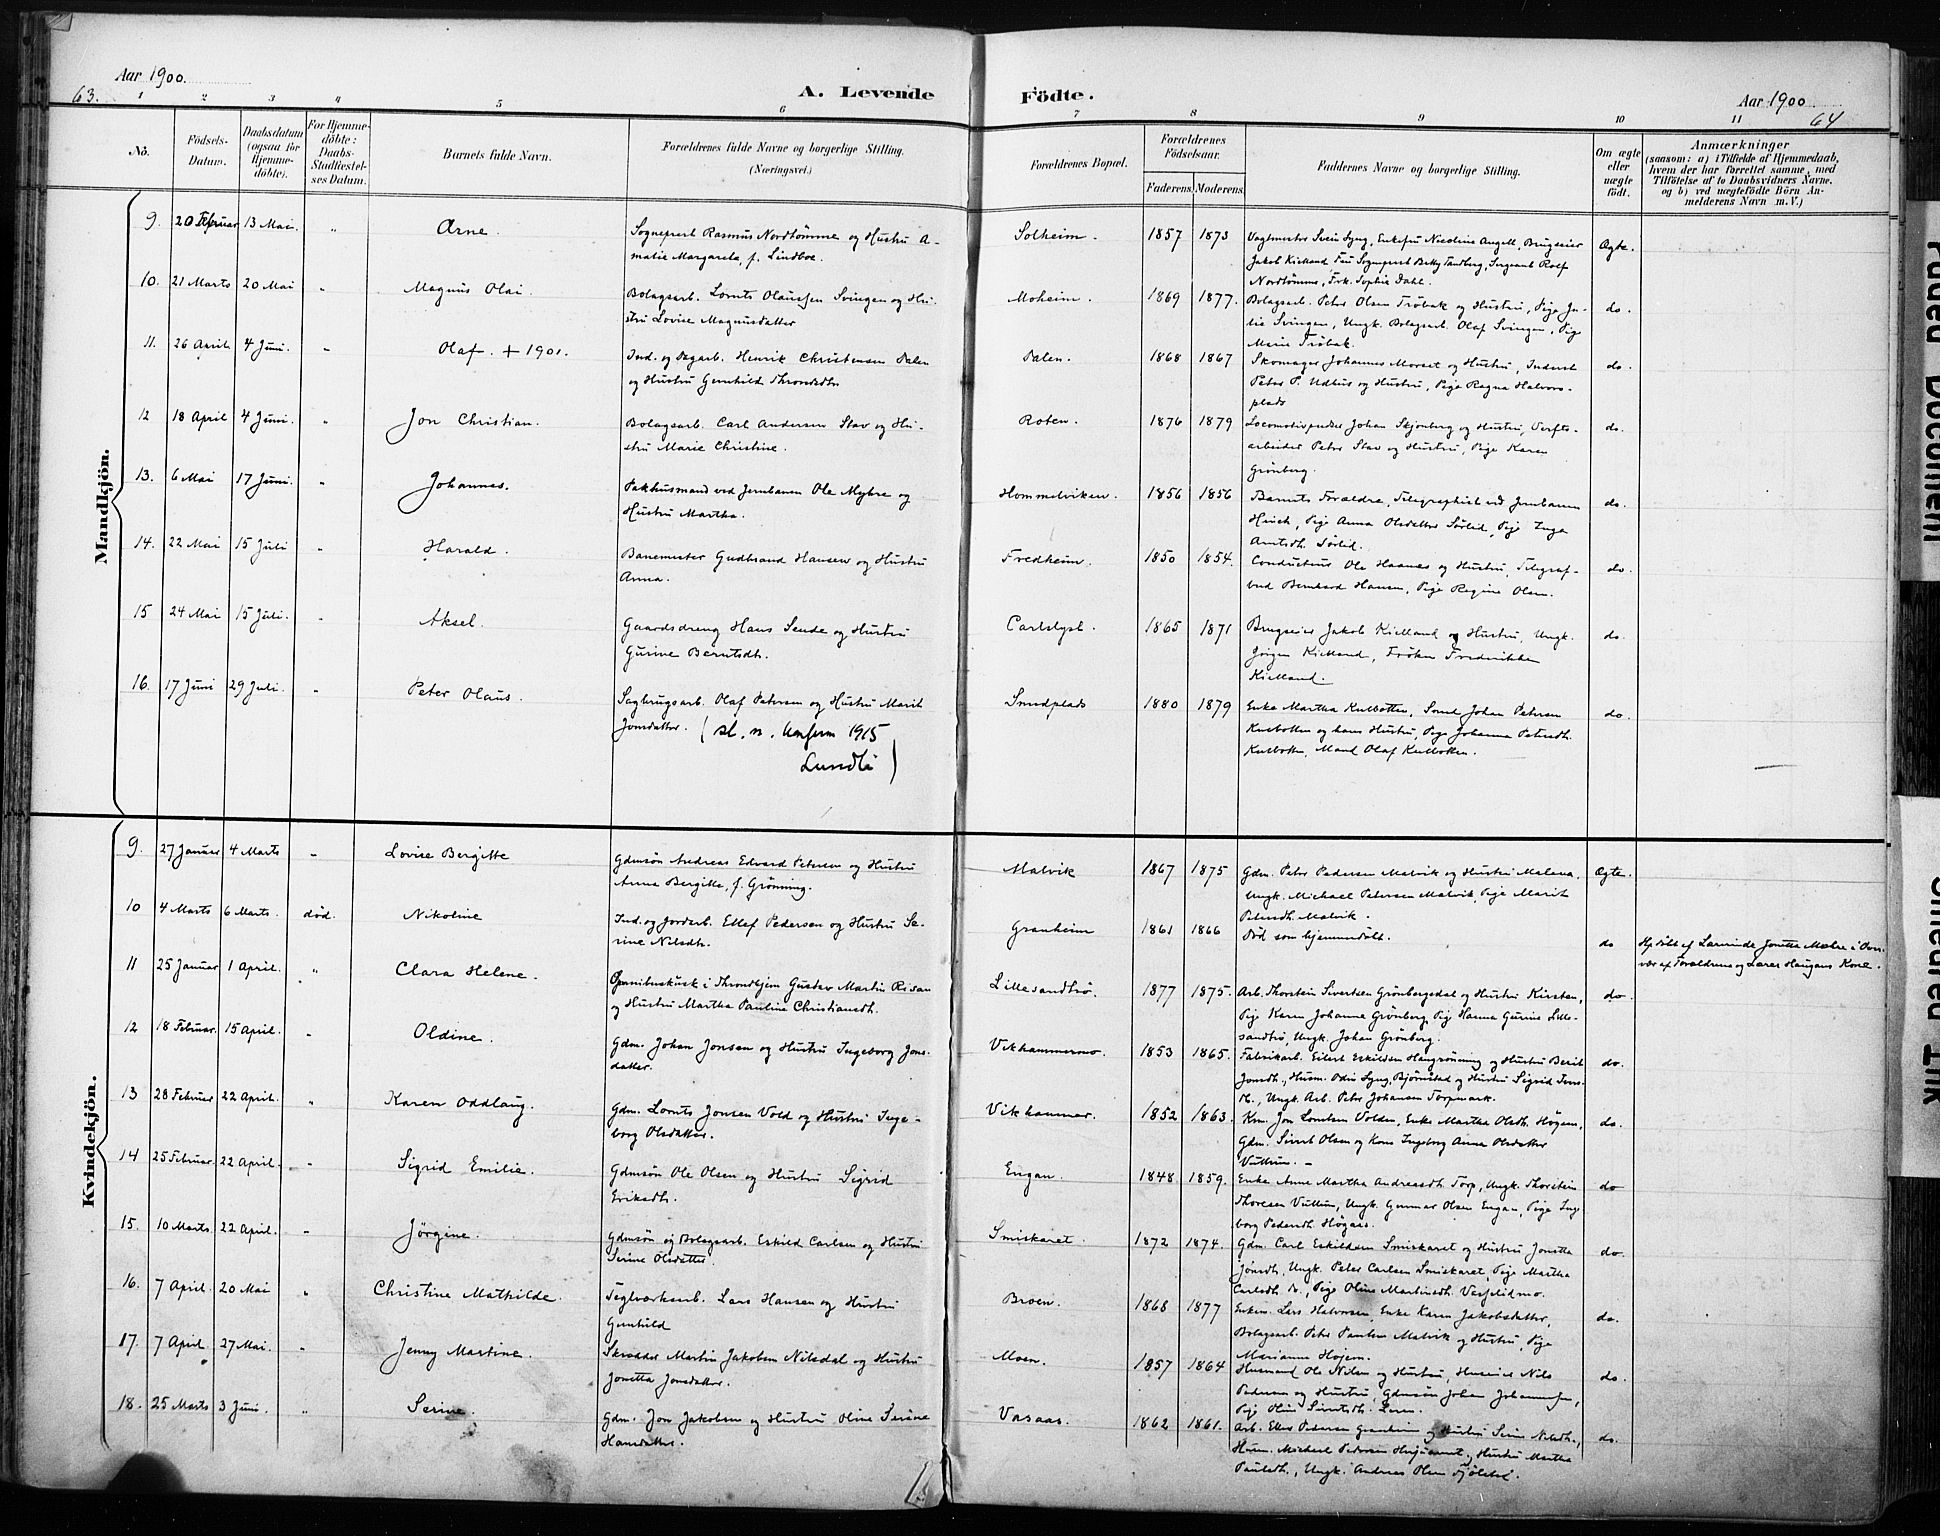 Aar 1900.
63.
A. Levende Födte.
Aar 1900.
64
1 2 3 4 5 6 7 8 9 10 11
No.
Födsels-Datum.
Daabsdatum (ogsaa for Hjemmedöbte).
For Hjemmedöbte: Daabs-Stadfæstelses Datum.
Barnets fulde Navn.
Forældrenes fulde Navne og borgerlige Stilling. (Næringsvei.)
Forældrenes Bopæl.
Forældrenes Födselsaar.
Faderens. Moderens.
Faddernes Navne og borgerlige Stilling.
Om ægte eller uægte födt.
Anmærkninger
(saasom: a) i Tilfælde af Hjemmedaab, hvem der har forrettet samme, med Tilföielse af to Daabsvidners Navne, og b) ved uægtefödte Börn Anmelderens Navn m.V.)
Mandkjön.
9. 20 Februar 13 Mai. " Arne. Sogneprest Rasmus Nordtömme og Hustru Amalie Margareta, f. Lindboe. Solheim. 1857 1873 Vagtmester Svein Lyng, Enkefru Nicoline Angell, Brugseier Jakob Kielland Fru Sogneprest Betty Tandberg, Sergeant Rolf Nordtömme, Frk. Sophie Dahl. Ægte.
10. 21 Marts 20 Mai " Magnus Olai. Bolagsarb. Lornts Olaussen Svingen og Hustru Lovise Magnusdatter Moheim. 1869 1877. Bolagsarb. Peter Olsen Tröbak og Hustru, Pige Julie Svingen, Ungk. Bolagsarb. Olaf Svingen, Pige Marie Tröbak. do.
11. 26 April 4 Juni. " Olaf. + 1901. Ind. og Dagarb. Henrik Christensen Dalen og Hustru Gunhild Throndsdtr. Dalen. 1868 1867 Skomager Johannes Morset og Hustru, Inderst Peter P. Udhus og Hustru, Pige Ragna Halvorsplads do.
12 18 April 4 Juni. " Jon Christian. Bolagsarb. Carl Andersen Stav og Hustru Marie Christine. Roten. 1876 1879 Locomotivpudser Johan Skjönberg og Hustru, Verftsarbeider Peter Stav og Hustru, Pige Karen Grönberg. do.
13. 6 Mai 17 Juni. " Johannes. Pakhusmand ved Jernbanen Ole Myhre og Hustru Martha. Hommelviken. 1856 1856 Barnets Forældre, Telegraphist ved Jernbanen, Pige Anna Olsdatter Sörlid, Pige Inga Arntsdt. Sörlid. do.
14. 22 Mai 15 Juli " Harald. Banemester Gudbrand Hansen og Hustru Anna. Fredheim. 1850 1854. Conducteur Ole Haanes og Hustru, Telegrafbud Bernhard Hansen, Pige Regine Olsen. do.
15 24 Mai 15 Juli. " Aksel. Gaardsdreng Hans Sende og Hustru Gurine Berntsdtr. Carlslyst. 1865 1871 Brugseier Jakob Kielland og Hustru, Ungk. Jörgen Kielland, Fröken Frederikken Kielland. do.
16. 17 Juni 29 Juli. " Peter Olaus. Sagbrugsarb. Olaf Petersen og Hustru Marit Jonsdatter. (sl. n. 1915 Lundli) Smedplads 1880 1879 Enke Martha Kulbotten, Smed Johan Petersen Kulbotten og hans Hustru, Pige Johanna Petersdt. Kulbotten, Mand Olaf Kulbotten. do.
Kvindekjön.
9. 27 Januar 4 Marts " Lovise Bergitte Gdmsön Andreas Edvard Petersen og Hustru Anna Bergitte, f. Grönning. Malvik 1867 1875 Gdm. Peter Pedersen Malvik og Hustru Malena, Ungk. Michael Petersen Malvik, Pige Marit Petersdt. Malvik. Ægte.
10 4 Marts 6 Marts. död. Nikoline Ind. og Jordarb. Ellef Pedersen og Hustru Serine Nilsdtr. Granheim 1861 1866 Död som hjemmedöbt. do Hj.döbt af Laurinde Jonetta Malve i Overvær af Forældrene og Lærer Haugans Kone.
11 25 Januar 1 April. " Clara Helene. Omnibuskusk i Throndhjem Gustav Martin Risan og Hustru Martha Pauline Christiansdt. Lillesandtrö. 1877 1875. Arb. Thorstein Sivertsen Grönbergsdal og Hustru Kirsten, Pige Karen Johanna Grönberg, Pige Hanna Gurine Lillesandtrö, Ungk. Johan Grönberg. do.
12 18 Februar. 15 April. " Oldine. Gdm. Johan Jonsen og Hustru Ingeborg Jonsdatter. Vikhammermo. 1853 1865. Fabrikarb. Eilert Eskildsen Haugrönning og Hustru Berit Jonsdt., Husm. Odin Lyng, Björnstad og Hustru Sigrid Jonsdt., Ungk. Arb. Peter Johansen Torpmark. do.
13 28 Februar 22 April. " Karen Oddlaug. Gdm. Lornts Jonsen Vold og Hustru Ingeborg Olsdatter. Vikhammer. 1852 1863. Km. Jon Lorntsen Volden, Enke Martha Olsdt. Högsen, Gdm. Sivert Olsen og Kone Ingeborg Anna Olsdatter Vuttun. do.
14 25 Februar. 22 April. " Sigrid Emilie. Gdmsön Ole Olsen og Hustru Sigrid Eriksdtr. Engan. 1848 1859. Enke Anne Martha Andreasdt. Torp, Ungk. Thorstein Thoresen Vuttun, Ungk. Gunnar Olsen Engan, Pige Ingeborg Pedersdt. Högaas. do
15. 10 Marts. 22 April. " Jörgine. Gdmsön og Bolagsarb. Eskild Carlsen og Hustru Serine Olsdatter. Smiskaret. 1872 1874. Gdm. Carl Eskildsen Smiskaret og Hustru Jonetta Jönsdt., Ungk. Peter Carlsen Smiskaret, Pige Martha Carlsdt. ib., Pige Oline Martinsdt. Vesfeldmo. do.
16. 7 April. 20 Mai " Christine Mathilde. Teglværksarb. Lars Hansen og Hustru Gunhild Broen. 1868 1877 Enkem. Lars Halvorsen, Enke Karen Jakobsdatter, Bolagsarb. Peter Paulsen Malvik og Hustru, Pige Marianne Höjem. do.
17. 7 April. 27 Mai. " Jenny Martine. Skrædder Martin Jakobsen Nilsdal og Hustru Jonetta Jonsdatter. Moen. 1857 1864 Husmand Ole Nilsen og Hustru, Huseier Nils Pedersen og Hustru, Gdmsön Johan Johannesen, Pige Oline Sivertsdt. Leren. do.
18. 25 Marts 3 Juni. " Serine. Gdm. Jon Jakobsen og Hustru Oline Serine Hansdatter. Vasaas. 1862 1861. Arb. Ellef Pedersen Granheim og Hustru Serine Nilsdt., Husm. Michael Pedersen og Hustru Martha Paulsdt., Ungk. Andreas Olsen Fjölstad. do.
Faded Document
Smeared Ink